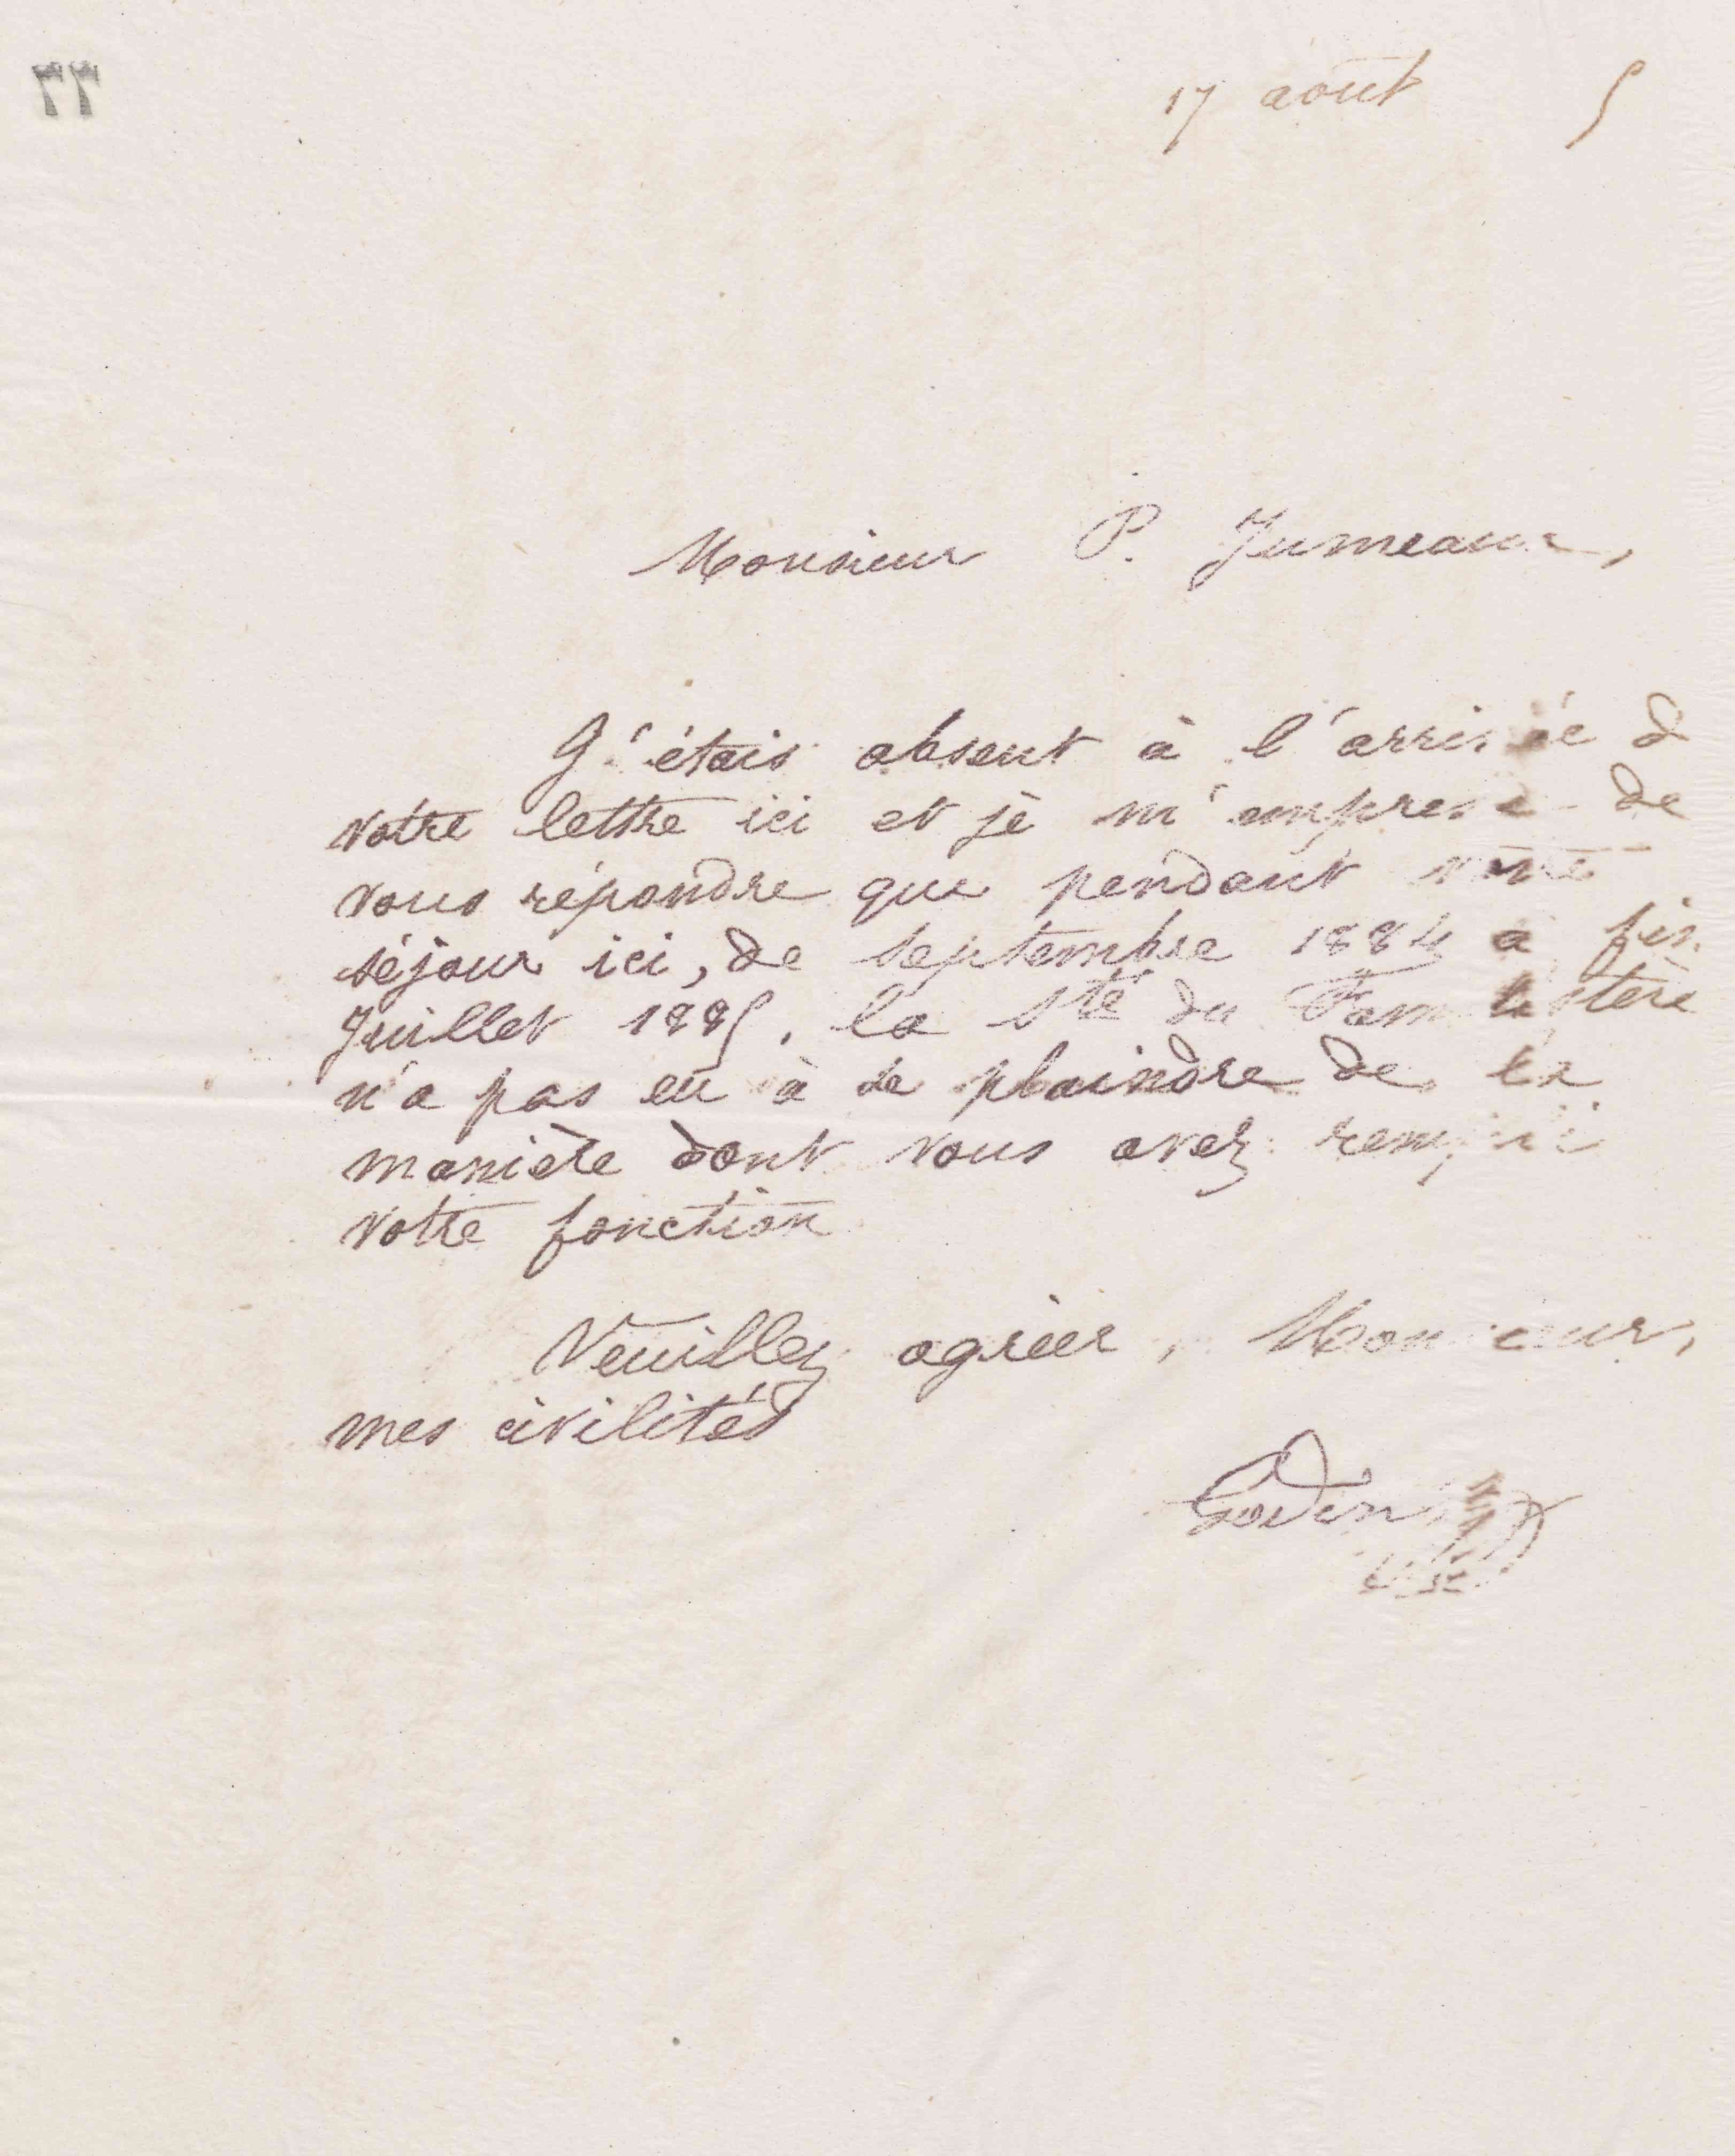 77
17 août 5
Monsieur P. Jumeaux,
J'étais absent à l'arrivée de
votre lettre ici et je m'empresse de
vous répondre que pendant votre
séjour ici, de septembre 1884 à fin
Juillet 1885, la Sté du Familistère
n'a pas eu à se plaindre de la
manière dont vous avez rempli
votre fonction
Veuillez agréer, Monsieur,
mes civilités
Godin